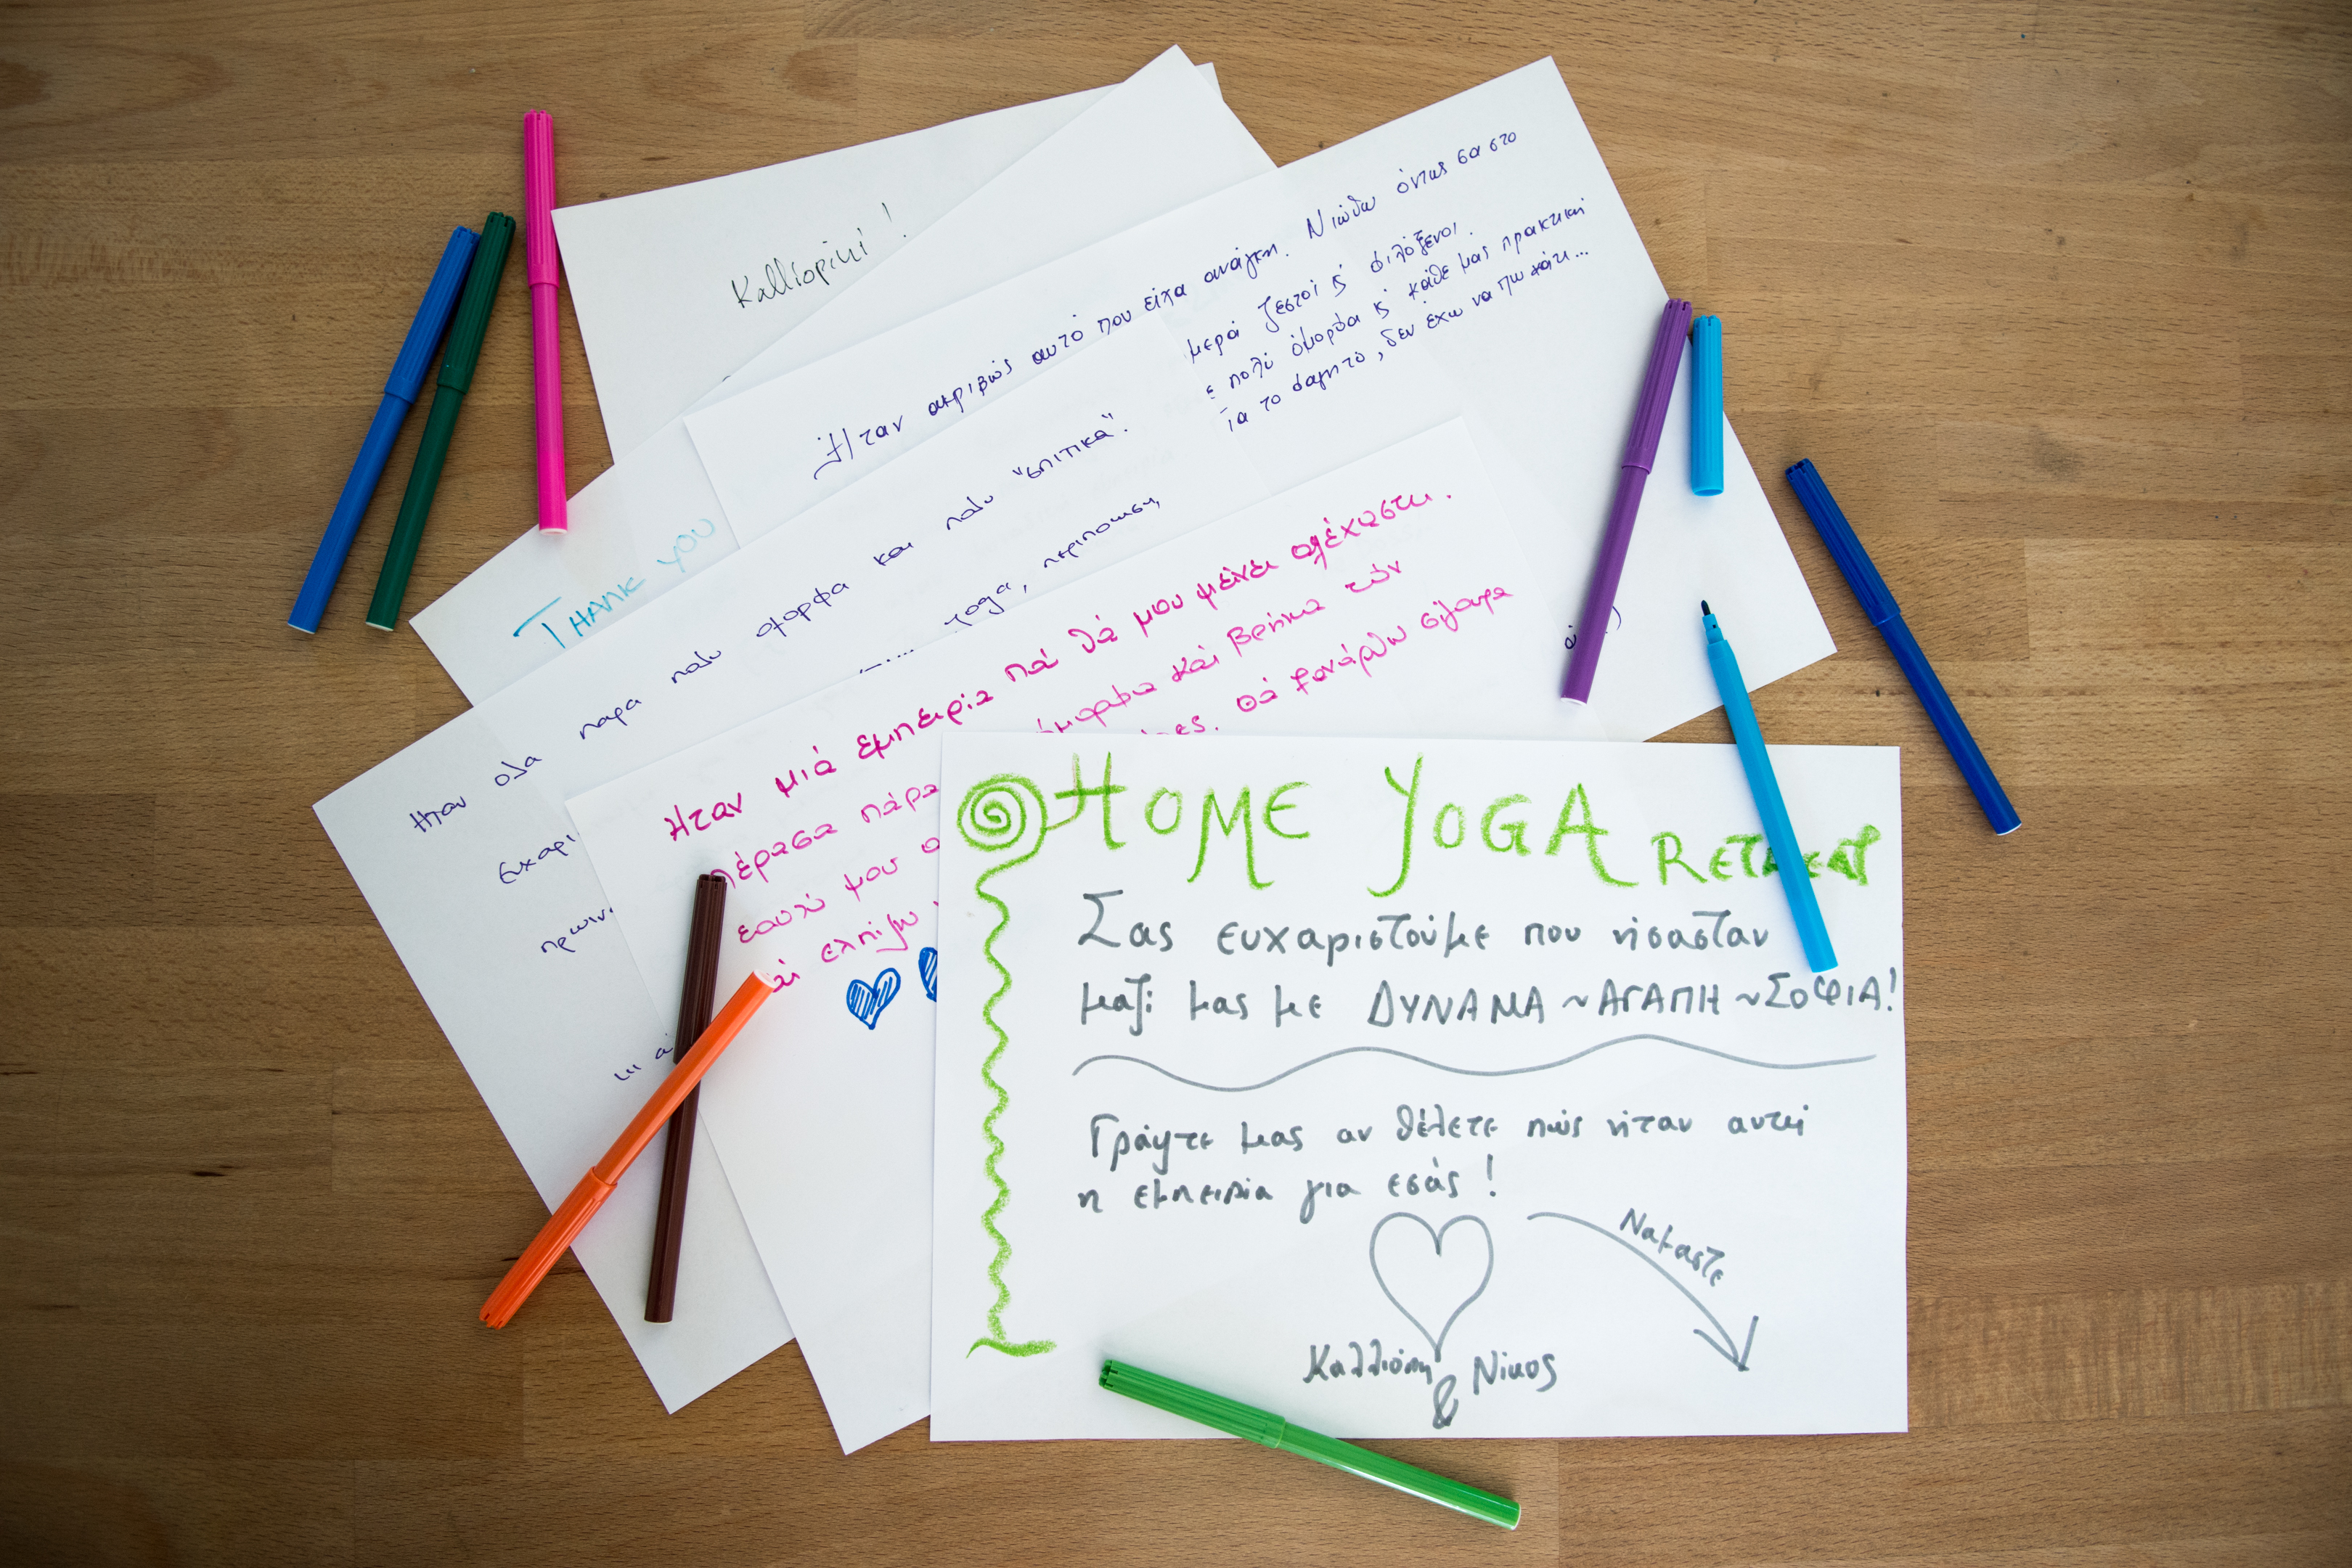 Kalliopiki!
Ήταν ακριβώς αυτό που είχα ανάγκη. Νιώθω όντως σα στο
μερά ζεστοί κ φιλόξενοι.
ε πολύ όμορφα κ κάθε μας πρακτική
ια το φαγητό, δεν έχω να πω κάτι...
THANK YOU
Ηταν ολα παρα πολυ ομορφα και πολυ "σπιτικα".
Ευχαρι
yoga, περιποιηση,
πρωιν
Ηταν μιά εμπειρία πά θά μου μείνει αξέχαστη.
Πέρασα πάρα όμορφα και βρήκα τόν
εαυτό μου
ρες. Θά ξανάρθω σίγουρα
αι ελπίζω
HOME YOGA RETREAT
Σας ευχαριστούμε που ήσασταν
μαζί μας με ΔΥΝΑΜΑ ~ ΑΓΑΠΗ ~ ΣΟΦΙΑ!
Γράψτε μας αν θέλετε πώς ήταν αυτή
η εμπειρία για εσάς!
Ναμαστε
Καλλιόπη & Νίκος